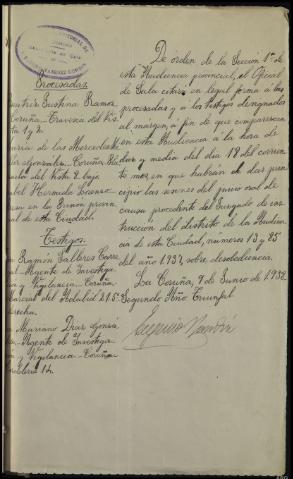 Procesadas
Cristina Ramos
Coruña, Travesía del
1 y 2
María de las Mercedes
González. Coruña
2 bajo
Hermida
en la Prisión provin
al de esta Ciudad
Testigos
Ramón
Agente de Investiga
y Vigilancia - Coruña
del 21 5º
recha.
Mariano Díaz Gonzá
Agente de Investiga
y Vigilancia - Coruña
14
De orden de la Sección 1ª de
esta Audiencia provincial, el Oficial
de Sala citará en legal forma a las
procesadas y a los testigos designados
al márgen, a fin de que comparezcan
en esta Audiencia a la hora de
diez y media del día 18 del corrien
te mes, en que habrán de dar prin
cipio las sesiones del juicio oral de
causa procedente del Juzgado de ins
trucción del distrito de la Audien
cia de esta Ciudad, números 13 y 25
del año 1937, sobre desobediencia.
La Coruña, 9 de Junio de 1938
Segundo Año Triunfal